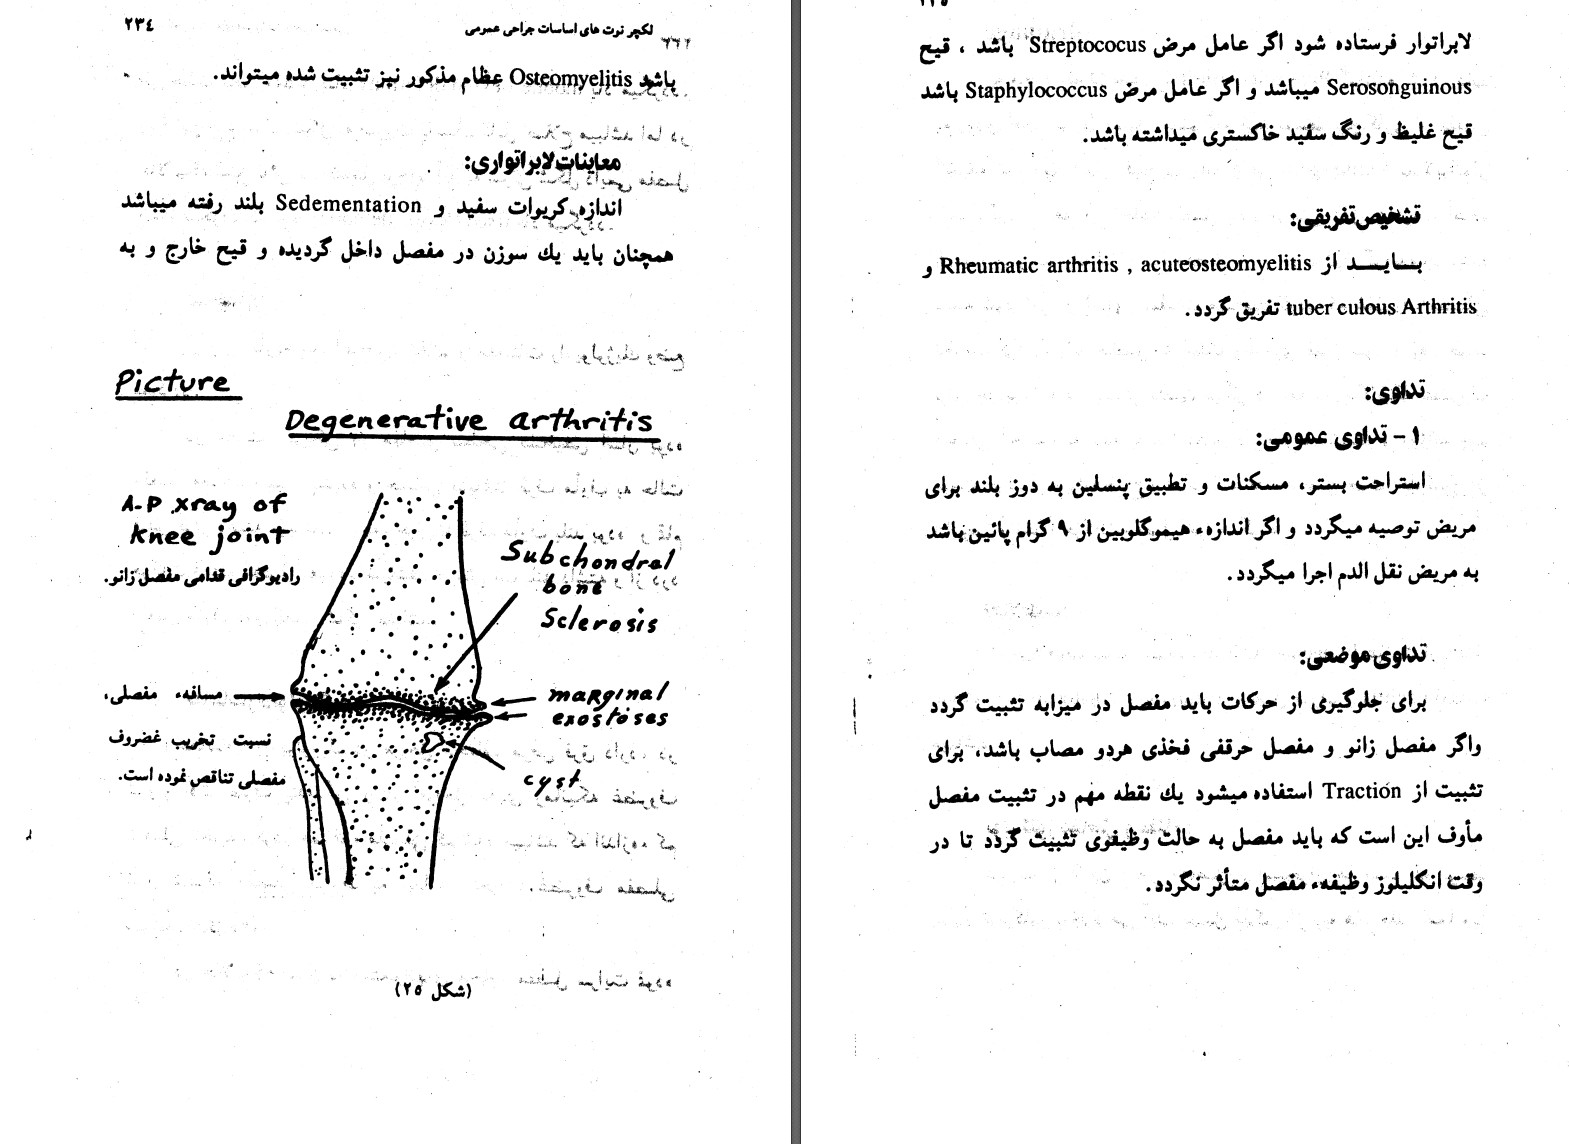 لکچر نوت های اساسات جراحی عمومی
٢٣٤
باشد Osteomyelitis عظام مذکور نیز تثبیت شده میتواند.
معاینات لابراتواری:
اندازه کریوات سفید و Sedementation بلند رفته میباشد
همچنان باید یك سوزن در مفصل داخل گردیده و قیح خارج و به
Picture
Degenerative arthritis
A-P xray of
knee joint
رادیوگرافی قدامی مفصل زانو.
Subchondral
bone
Sclerosis
مسافهء مفصلی،
marginal
exostoses
نسبت تخریب غضروف
مفصلی تناقص نموده است.
cyst
(شکل ٢٥)
٢٣٥
لابراتوار فرستاده شود اگر عامل مرض Streptococus باشد ، قیح
Serosonguinous میباشد و اگر عامل مرض Staphylococcus باشد
قیح غلیظ و رنگ سفید خاکستری میداشته باشد.
تشخیص تفریقی:
بایـــد از Rheumatic arthritis , acuteosteomyelitis و
tuber culous Arthritis تفریق گردد.
تداوی:
١ - تداوی عمومی:
استراحت بستر، مسکنات و تطبیق پنسلین به دوز بلند برای
مریض توصیه میگردد و اگر اندازهء هیموگلوبین از ٩ گرام پائین باشد
به مریض نقل الدم اجرا میگردد.
تداوی موضعی:
برای جلوگیری از حرکات باید مفصل در میزابه تثبیت گردد
واگر مفصل زانو و مفصل حرقفی فخذی هردو مصاب باشد، برای
تثبیت از Traction استفاده میشود یك نقطه مهم در تثبیت مفصل
مأوف این است که باید مفصل به حالت وظیفوی تثبیت گردد تا در
وقت انکلیلوز وظیفهء مفصل متأثر نگردد.